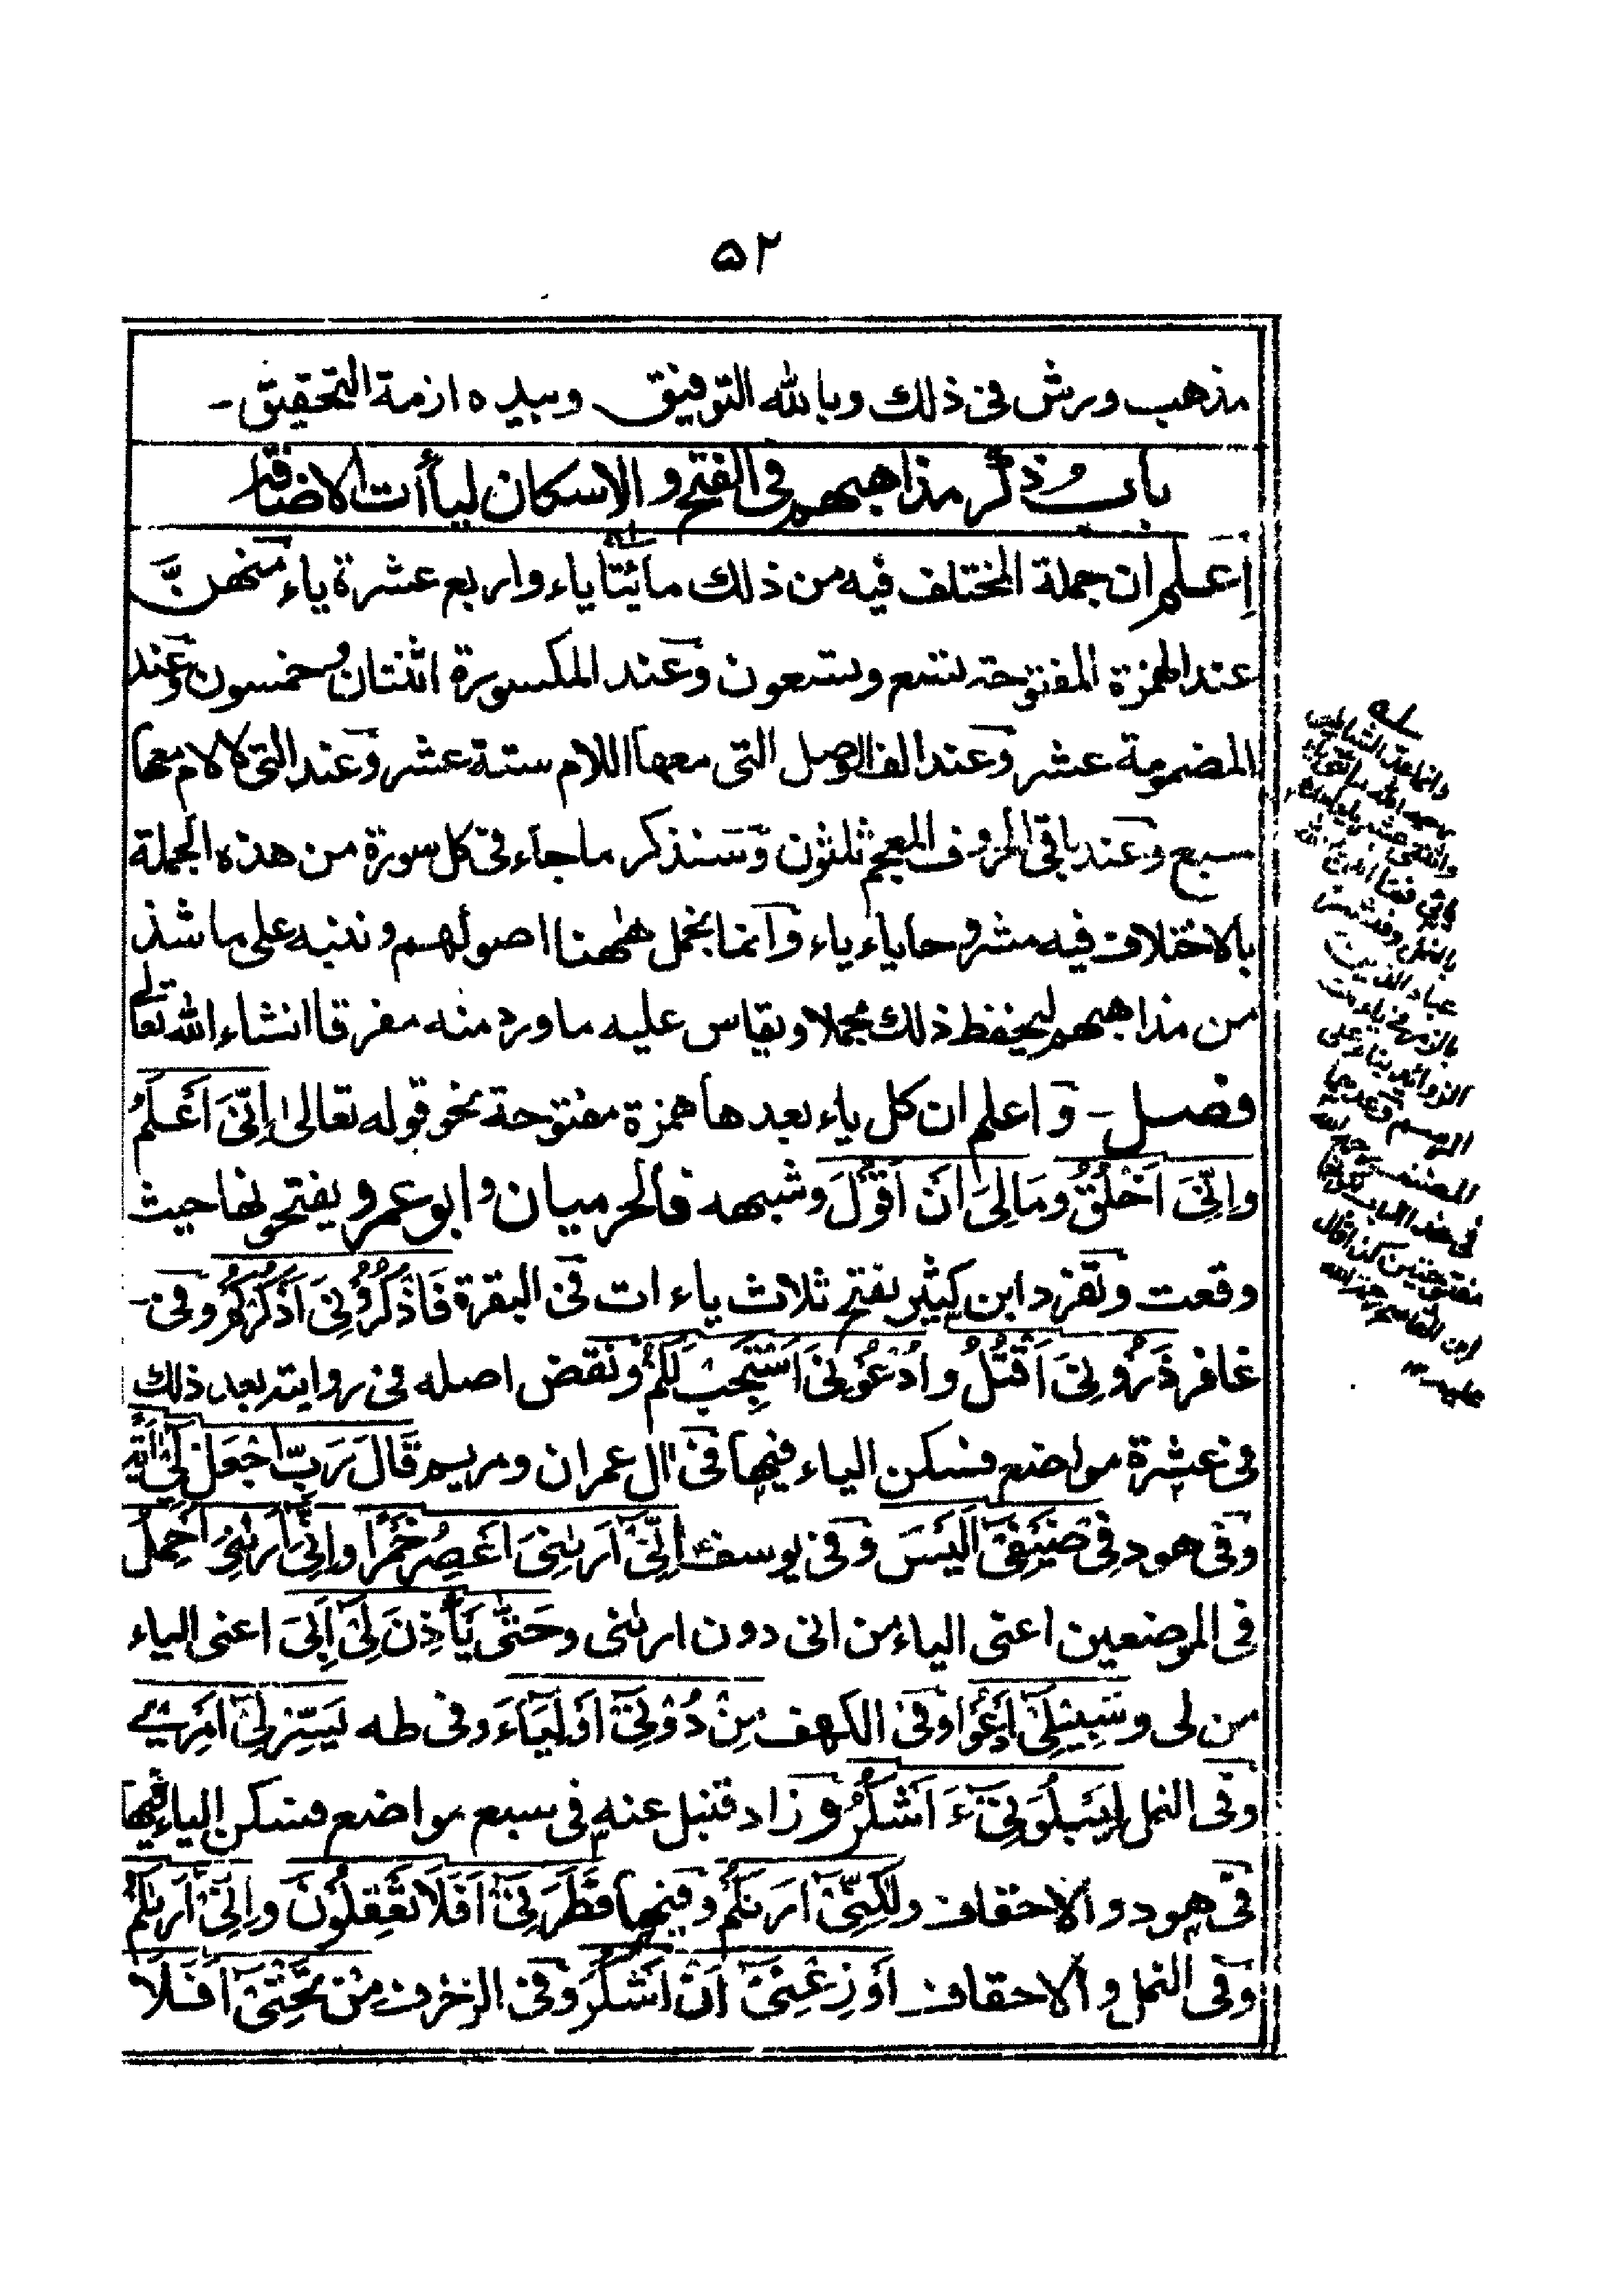 ۵۲
مذهب ورش فى ذلك وبالله التوفيق وبيده ازمة التحقيق -
باب ذكر مذاهبهم فى الفتح والاسكان ليأات الاضافة
اِعلم ان جملة المختلف فيه من ذلك مائتا ياء واربع عشرة ياء منهن
عند الهمزة المفتوحة تسع وتسعون وعند المكسورة اثنتان وخمسون وعند
المضمومة عشر وعند الف الوصل التى معها اللام ستة عشر وعند التى لا لام معها
سبع وعند باقى الحروف المعجم ثلثون وسنذكر ما جاء فى كل سورة من هذه الجملة
بالاختلاف فيه مشروحا ياء ياء وانما نجمل ههنا اصولهم وننبه على ما شذ
من مذاهبهم ليحفظ ذلك مجملا ويقاس عليه ما ورد منه مفرقا انشاء الله تعالى
فصل - واعلم ان كل ياء بعدها همزة مفتوحة نحو قوله تعالى اِنِّىَ اَعْلَمُ
واِنِّىَ اَخْلُقُ ومَالِىَ اَنْ اَقُوْلَ وشبهه فالحرميان وابو عمرو يفتحونها حيث
وقعت وتفرد ابن كثير بفتح ثلاث ياءات فى البقرة فَاذْكُرُوْنِىَ اَذْكُرْكُمْ وفى -
غافر ذَرُوْنِىَ اَقْتُلُ وادْعُوْنِىَ اَسْتَجِبْ لَكُمْ ونقض اصله فى روايته بعد ذلك
فى عشرة مواضع فسكن الياء فيها فى ال عمران ومريم قَالَ رَبِّ اجْعَلْ لِىْ اٰيَةً
وفى هود فِىْ ضَيْفِىْ اَلَيْسَ وفى يوسف اِنِّىْ اَرٰىنِىَ اَعْصِرُ خَمْرًا واِنِّىْ اَرٰىنِىَ اَحْمِلُ
فى الموضعين اعنى الياء من انى دون ارٰىنى وحَتّٰى يَأْذَنَ لِىْ اَبِىْ اعنى الياء
من لى وسَبِيْلِىْ اَدْعُوْا وفى الكهف مِنْ دُوْنِىْ اَوْلِيَاءَ وفى طه يَسِّرْ لِىْ اَمْرِىْ
وفى النمل لِيَبْلُوَنِىْ ءَ اَشْكُرُ وزاد قنبل عنه فى سبع مواضع فسكن الياء فيها
فى هود والاحقاف ولٰكِنِّىْ اَرٰىكُمْ وفيها فَطَرَنِىْ اَفَلَا تَعْقِلُوْنَ واِنِّىْ اَرٰىكُمْ
وفى النمل والاحقاف اَوْزِعْنِىْ اَنْ اَشْكُرَ وفى الزخرف مِنْ تَحْتِىْ اَفَلَا